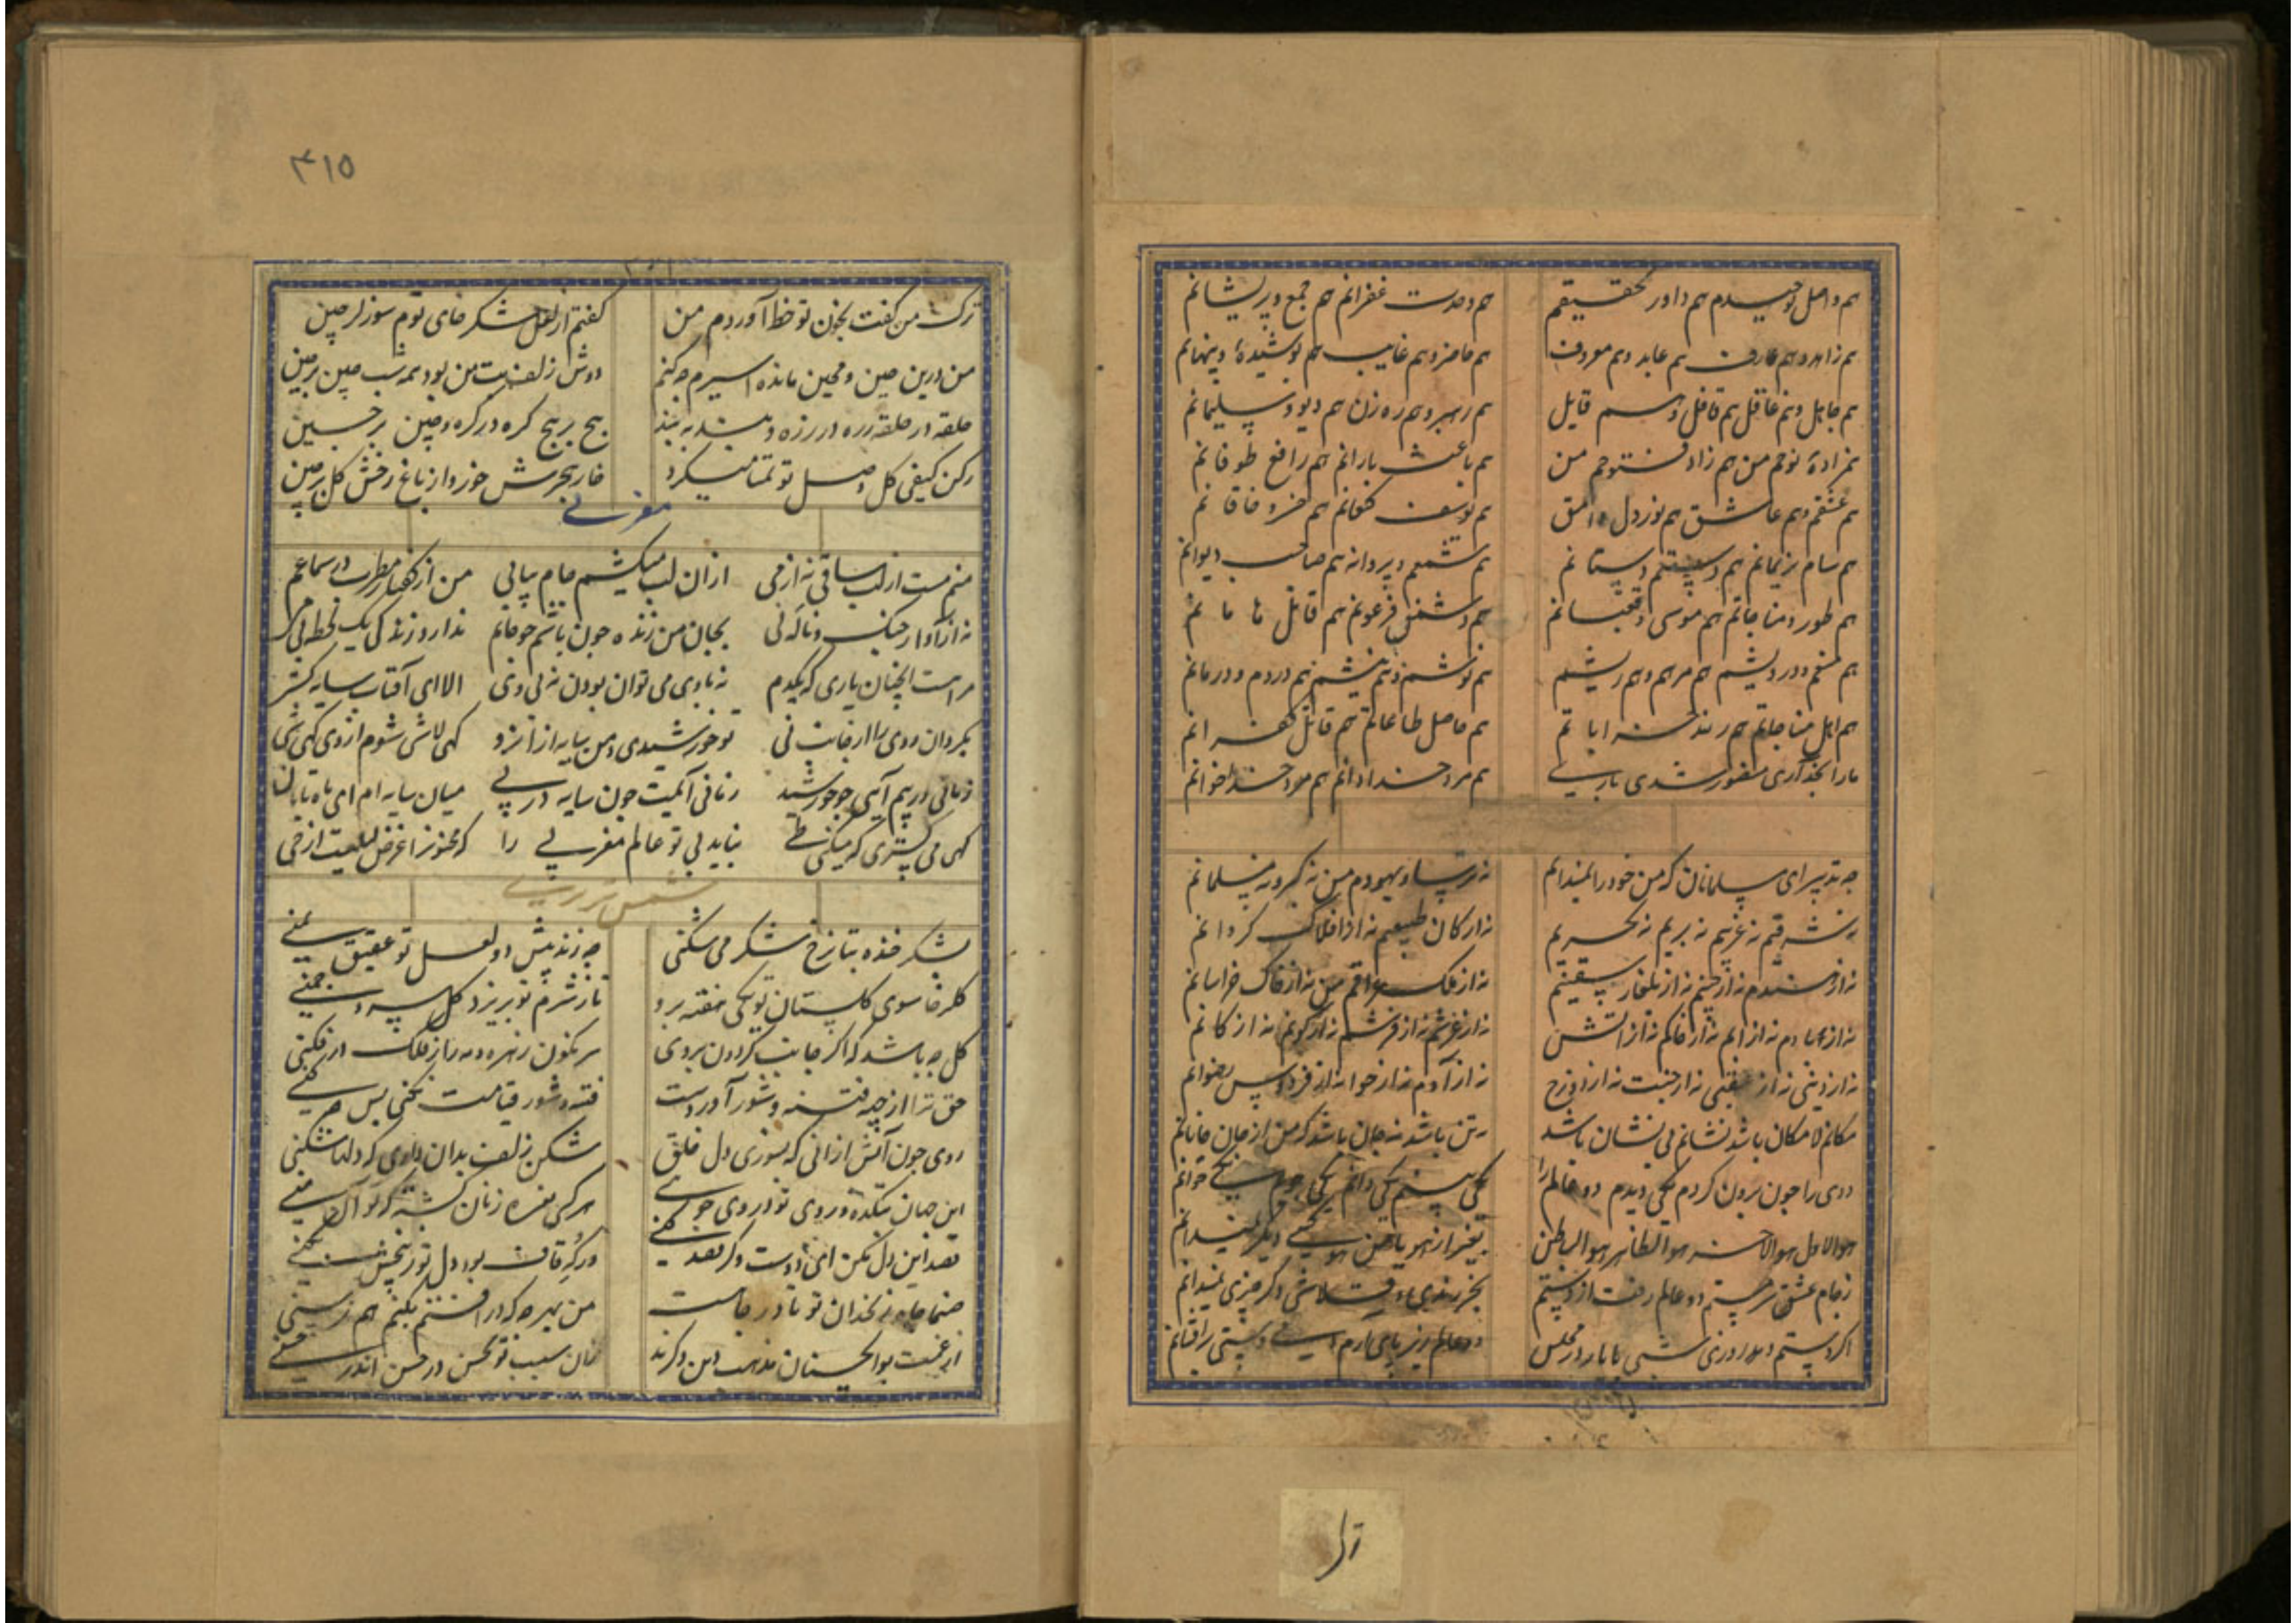 هم واصل توحیدم هم داور تحقیقم هم وحدت غفرانم هم جمع و پریشانم
هم زاهد و هم عارف هم عابد و هم معروف هم حاضر و هم غایب هم پوشیده و پنهانم
هم جاهل و هم عاقل هم قافل و هم قایل هم رهبر و هم ره زن هم دیو و سلیمانم
هم زاده نوحم من هم زاد فتوحم من هم باعث بارانم هم رافع طوفانم
هم عشقم و هم عاشق هم نور دل وامق هم یوسف کنعانم هم خسرو خاقانم
هم سام نریمانم هم دستانم هم شمعم و پروانه هم صاحب دیوانم
هم طور و مناجاتم هم موسی هم دشمن فرعونم هم قاتل هامانم
هم منعم و درویشم هم مرهم و هم ریشم هم نوشم و هم نیشم هم دردم و درمانم
هم اهل مناجاتم هم رند خراباتم هم حاصل طاعاتم هم قاتل کفرانم
هم مرد خدادانم هم مرد خداخوانم
چه تدبیر ای مسلمانان که من خود را نمیدانم نه ترسا و یهودم من نه کبر و نه مسلمانم
نه شرقیم نه غربیم نه بریم نه بحریم نه ارکان طبیعیم نه از افلاک کردانم
نه از هندم نه از چینم نه از بلغار سقینم نه از ملک عراقم من نه از خاک خراسانم
نه از بادم نه از ابم نه از خاکم نه از اتش نه از عرشم نه از فرشم نه از کونم نه از کانم
نه از دنیی نه از عقبی نه از جنت نه از دوزخ نه از آدم نه از حوا نه از فردوس رضوانم
مکانم لامکان باشد نشانم بی نشان باشد نه تن باشد نه جان باشد که من از جان جانانم
دوی را چون برون کردم یکی دیدم دو عالم را یکی بینم یکی دانم یکی جویم یکی خوانم
هو الاول هو الآخر هو الظاهر هو الباطن بغیر از هو یا من هو کسی دیگر نمیدانم
ز جام عشق سرمستم دو عالم رفت از دستم بجز رندی و قلاشی دگر چیزی نمیدانم
اکر دستم دهد روزی شبی با یار در مجلس دو عالم زیر پای آرم دستی برافشانم
۴۱۵
ترک من کفت بخون تو خط آوردم من کفتم از لعل شکرخای توم سوز لرچین
من درین چین و محین مانده اسیرم چه کنم دوش زلف بت من بود همه شب چین برچین
حلقه در حلقه زره در زره و بند به بند پیچ بر پیچ کره در کره و چین بر چین
رکن کیفی کل وصل تو تمنا میکرد خار هجرش خور و از باغ رخش کل برچین
مغربی
منم مست از لب ساقی نه از می از ان لب میکشم جام پیاپی من از کفتار مطرب در سماعم
نه از آواز چنک و ناله نی بجان من زنده چون باشم چو جانم ندارد زندکی یک لحظه بی
مراست انچنان یاری که یکدم نه با وی می توان بودن نه بی وی الا ای آفتاب سایه کستر
بکردان روی را از جانب فی تو خورشیدی و من سایه از انرو کهی لاشی شوم از وی کهی شی
زمانی در پیم آیی چو خورشید زمانی آیمت چون سایه در پی میان سایه ام ای ماه تابان
کهی می کستری که میکنی طی نباید بی تو عالم مغربی را که مجنونرا غرض لیلیست از حی
شمس تبریزی
بشکر خنده بتا نرخ شکر می شکنی چه زند پیش دو لعل تو عقیق یمنی
کلرخا سوی کلستان تو یکی هفته برو تا ز شرم تو بریزد کل و چمنی
کل چه باشد که اکر جانب کردون بروی سرنکون زهره و مه را ز فلک درفکنی
حق ترا از جهه فتنه و شور آوردست فتنه و شور قیامت نکنی پس چه کنی
روی چون آتش از انی که بسوزی دل خلق شکن زلف بدان داری که دلها شکنی
قصد این دل مکن ای دوست دکر قصد کنی
صنما چاه زنخدان تو نادر جاست من بهر چه که در افتم بکنم هم رسنی